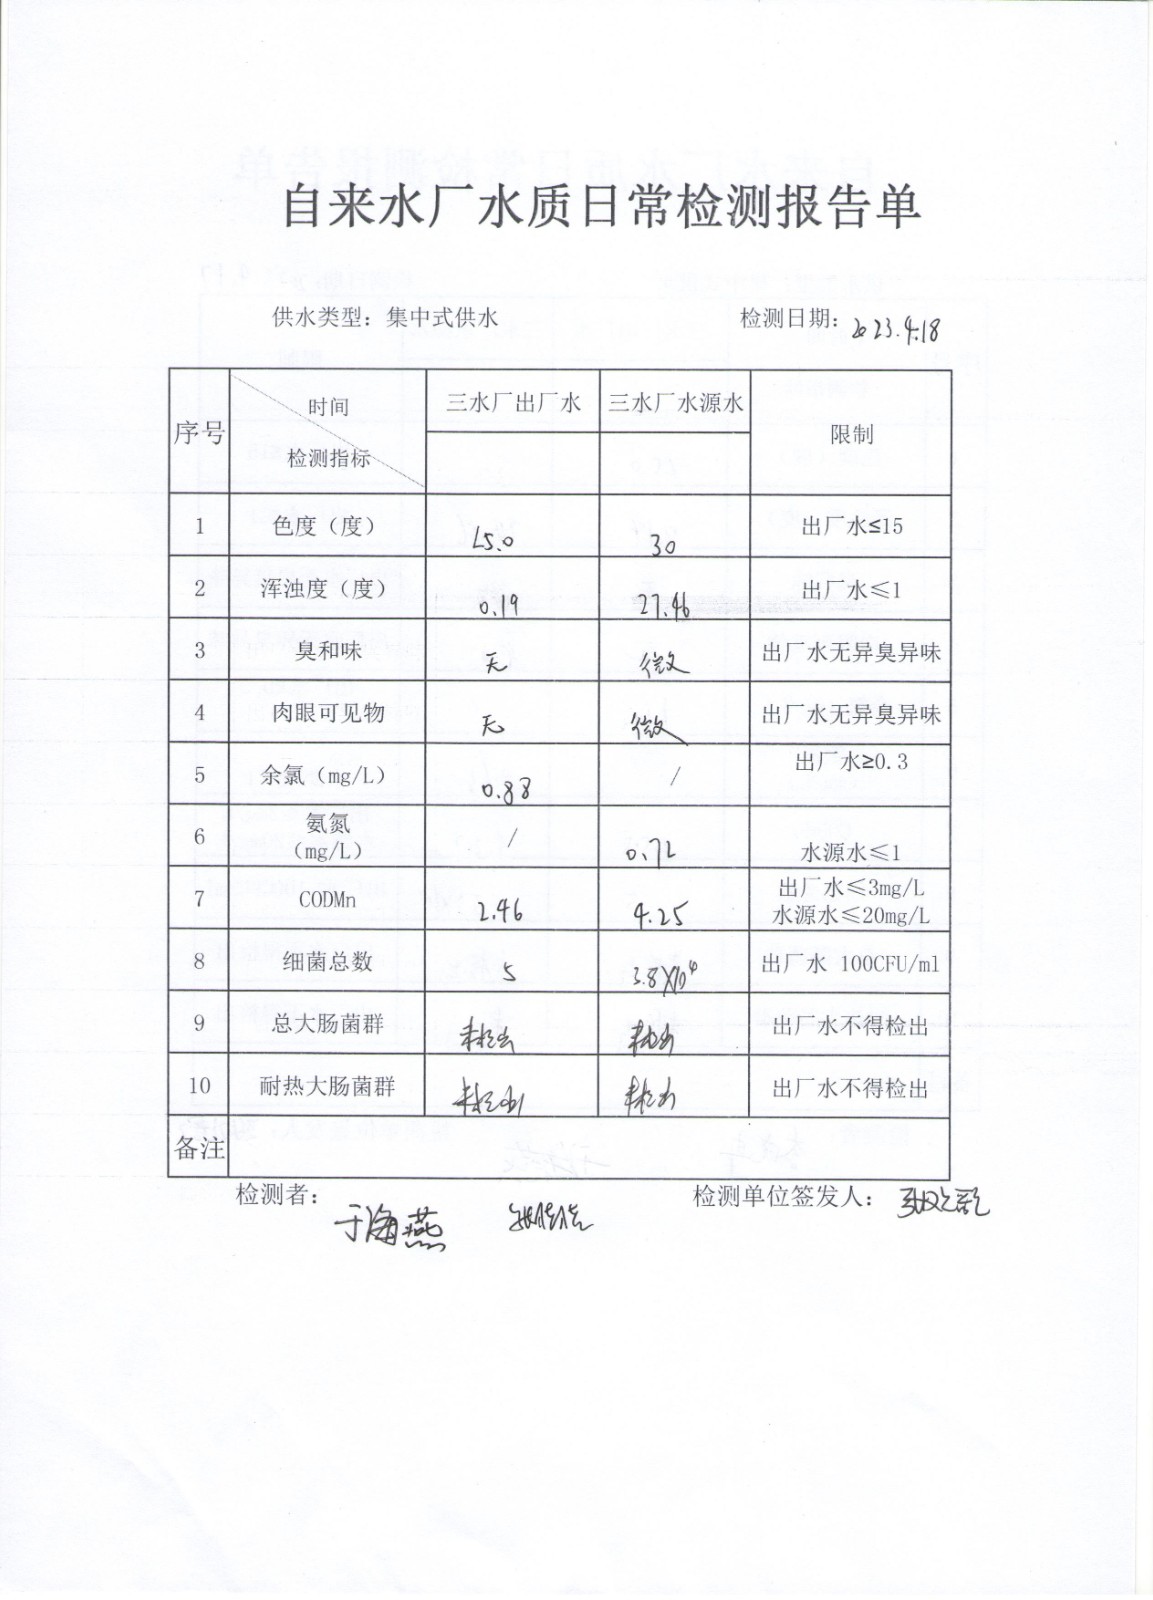 自来水厂水质日常检测报告单
供水类型：集中式供水 检测日期：2023.4.18
序号 时间 检测指标 三水厂出厂水 三水厂水源水 限制
1 色度（度） <5.0 30 出厂水≤15
2 浑浊度（度） 0.19 27.46 出厂水≤1
3 臭和味 无 微 出厂水无异臭异味
4 肉眼可见物 无 微 出厂水无异臭异味
5 余氯（mg/L） 0.88 / 出厂水≥0.3
6 氨氮（mg/L） / 0.72 水源水≤1
7 CODMn 2.46 4.25 出厂水≤3mg/L
水源水≤20mg/L
8 细菌总数 5 3.8×10⁴ 出厂水 100CFU/ml
9 总大肠菌群 未检出 未检出 出厂水不得检出
10 耐热大肠菌群 未检出 未检出 出厂水不得检出
备注
检测者： 于海燕 检测单位签发人：